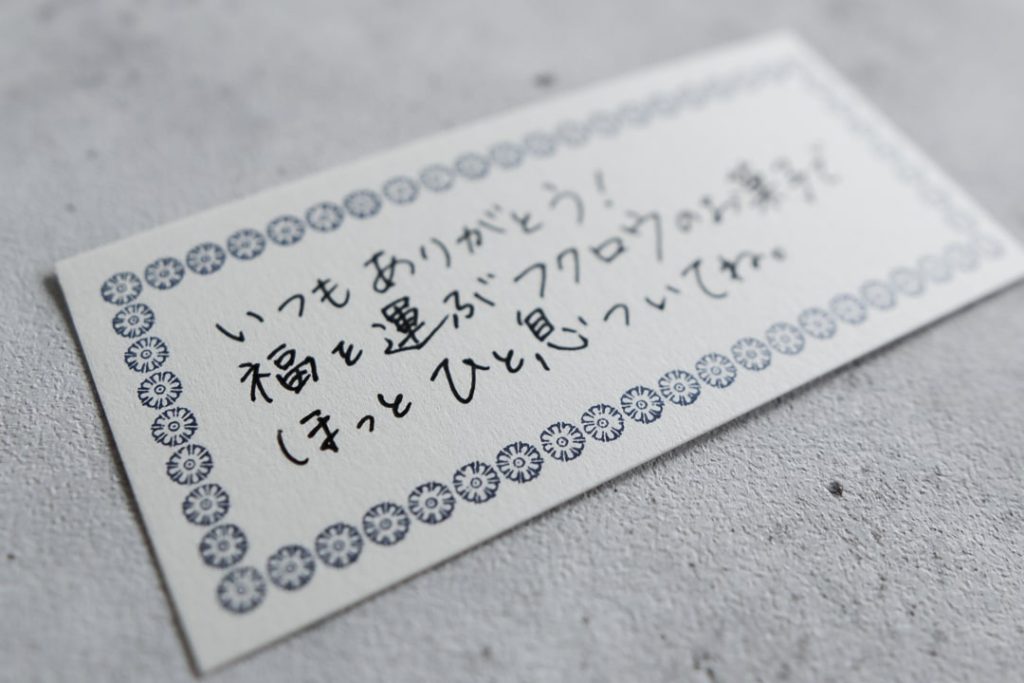 いつもありがとう！
福を運ぶフクロウのお菓子で
ほっとひと息ついてね。